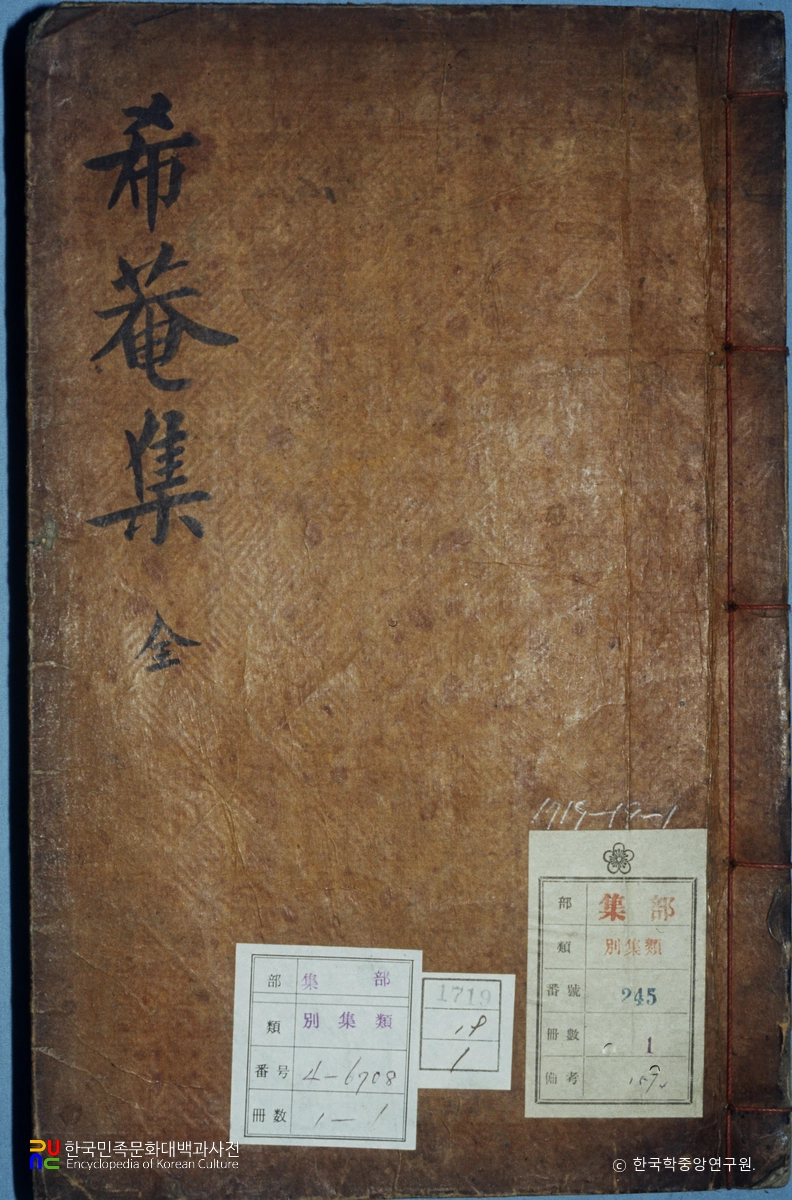 希菴集 全
1719-19-1
部 集部
類 別集類
番號 245
冊數 1
備考
部 集部
類 別集類
番号 4-6708
冊数 1-1
1719
19
1
한국민족문화대백과사전
Encyclopedia of Korean Culture
© 한국학중앙연구원.